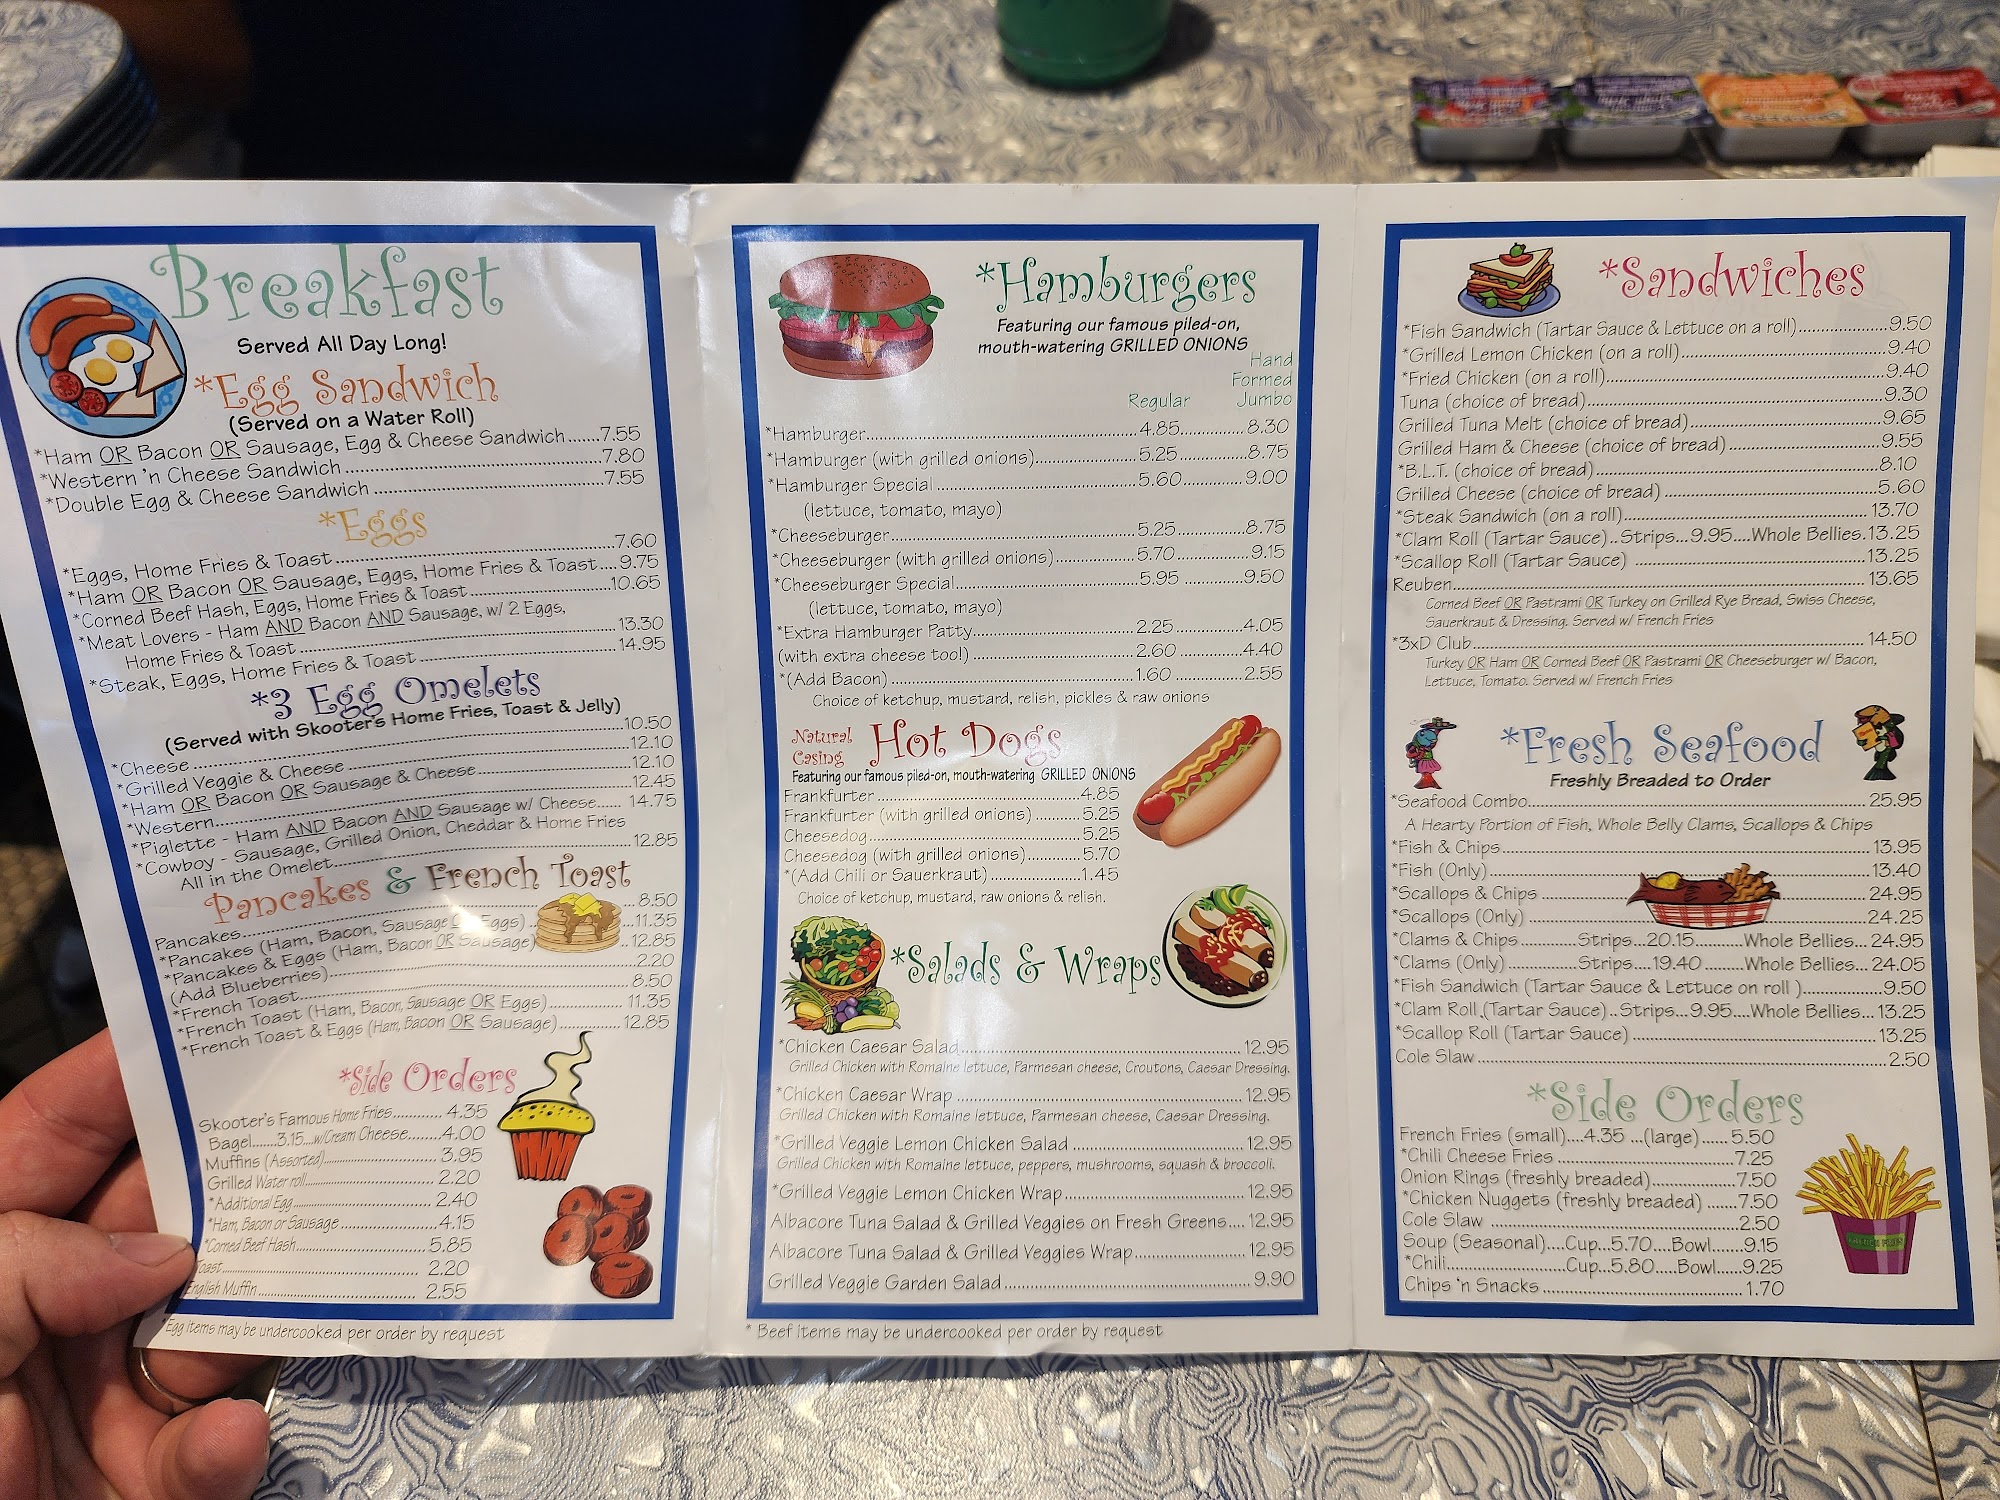 Breakfast
Served All Day Long!
*Egg Sandwich
(Served on a Water Roll)
*Ham OR Bacon OR Sausage, Egg & Cheese Sandwich......7.55
*Western 'n Cheese Sandwich......7.80
*Double Egg & Cheese Sandwich......7.55
*Eggs
*Eggs, Home Fries & Toast......7.60
*Ham OR Bacon OR Sausage, Eggs, Home Fries & Toast....9.75
*Corned Beef Hash, Eggs, Home Fries & Toast......10.65
*Meat Lovers - Ham AND Bacon AND Sausage, w/ 2 Eggs,
Home Fries & Toast......13.30
*Steak, Eggs, Home Fries & Toast......14.95
*3 Egg Omelets
(Served with Skooter's Home Fries, Toast & Jelly)
*Cheese......10.50
*Grilled Veggie & Cheese......12.10
*Ham OR Bacon OR Sausage & Cheese......12.10
*Western......12.45
*Piglette - Ham AND Bacon AND Sausage w/ Cheese......14.75
*Cowboy - Sausage, Grilled Onion, Cheddar & Home Fries
All in the Omelet......12.85
Pancakes & French Toast
Pancakes......8.50
*Pancakes (Ham, Bacon, Sausage OR Eggs)...11.35
*Pancakes & Eggs (Ham, Bacon OR Sausage)...12.85
(Add Blueberries)......2.20
*French Toast......8.50
*French Toast (Ham, Bacon, Sausage OR Eggs)......11.35
*French Toast & Eggs (Ham, Bacon OR Sausage)......12.85
*Side Orders
Skooter's Famous Home Fries......4.35
Bagel......3.15...w/Cream Cheese......4.00
Muffins (Assorted)......3.95
Grilled Water roll......2.20
*Additional Egg......2.40
*Ham, Bacon or Sausage......4.15
*Corned Beef Hash......5.85
Toast......2.20
English Muffin......2.55
*Egg items may be undercooked per order by request
*Hamburgers
Featuring our famous piled-on,
mouth-watering GRILLED ONIONS
Hand
Formed
Regular Jumbo
*Hamburger......4.85......8.30
*Hamburger (with grilled onions)......5.25......8.75
*Hamburger Special......5.60......9.00
(lettuce, tomato, mayo)
*Cheeseburger......5.25......8.75
*Cheeseburger (with grilled onions)......5.70......9.15
*Cheeseburger Special......5.95......9.50
(lettuce, tomato, mayo)
*Extra Hamburger Patty......2.25......4.05
(with extra cheese too!)......2.60......4.40
*(Add Bacon)......1.60......2.55
Choice of ketchup, mustard, relish, pickles & raw onions
Natural
Casing Hot Dogs
Featuring our famous piled-on, mouth-watering GRILLED ONIONS
Frankfurter......4.85
Frankfurter (with grilled onions)......5.25
Cheesedog......5.25
Cheesedog (with grilled onions)......5.70
*(Add Chili or Sauerkraut)......1.45
Choice of ketchup, mustard, raw onions & relish.
*Salads & Wraps
*Chicken Caesar Salad......12.95
Grilled Chicken with Romaine lettuce, Parmesan cheese, Croutons, Caesar Dressing.
*Chicken Caesar Wrap......12.95
Grilled Chicken with Romaine lettuce, Parmesan cheese, Caesar Dressing.
*Grilled Veggie Lemon Chicken Salad......12.95
Grilled Chicken with Romaine lettuce, peppers, mushrooms, squash & broccoli.
*Grilled Veggie Lemon Chicken Wrap......12.95
Albacore Tuna Salad & Grilled Veggies on Fresh Greens....12.95
Albacore Tuna Salad & Grilled Veggies Wrap......12.95
Grilled Veggie Garden Salad......9.90
* Beef items may be undercooked per order by request
*Sandwiches
*Fish Sandwich (Tartar Sauce & Lettuce on a roll)......9.50
*Grilled Lemon Chicken (on a roll)......9.40
*Fried Chicken (on a roll)......9.40
Tuna (choice of bread)......9.30
Grilled Tuna Melt (choice of bread)......9.65
Grilled Ham & Cheese (choice of bread)......9.55
*B.L.T. (choice of bread)......8.10
Grilled Cheese (choice of bread)......5.60
*Steak Sandwich (on a roll)......13.70
*Clam Roll (Tartar Sauce)..Strips...9.95....Whole Bellies.13.25
*Scallop Roll (Tartar Sauce)......13.25
Reuben......13.65
Corned Beef OR Pastrami OR Turkey on Grilled Rye Bread, Swiss Cheese,
Sauerkraut & Dressing. Served w/ French Fries
*3xD Club......14.50
Turkey OR Ham OR Corned Beef OR Pastrami OR Cheeseburger w/ Bacon,
Lettuce, Tomato. Served w/ French Fries
*Fresh Seafood
Freshly Breaded to Order
*Seafood Combo......25.95
A Hearty Portion of Fish, Whole Belly Clams, Scallops & Chips
*Fish & Chips......13.95
*Fish (Only)......13.40
*Scallops & Chips......24.95
*Scallops (Only)......24.25
*Clams & Chips......Strips...20.15......Whole Bellies...24.95
*Clams (Only)......Strips....19.40......Whole Bellies...24.05
*Fish Sandwich (Tartar Sauce & Lettuce on roll )......9.50
*Clam Roll (Tartar Sauce)..Strips...9.95....Whole Bellies...13.25
*Scallop Roll (Tartar Sauce)......13.25
Cole Slaw......2.50
*Side Orders
French Fries (small)....4.35 ...(large)......5.50
*Chili Cheese Fries......7.25
Onion Rings (freshly breaded)......7.50
*Chicken Nuggets (freshly breaded)......7.50
Cole Slaw......2.50
Soup (Seasonal)....Cup...5.70....Bowl......9.15
*Chili......Cup...5.80....Bowl......9.25
Chips 'n Snacks......1.70